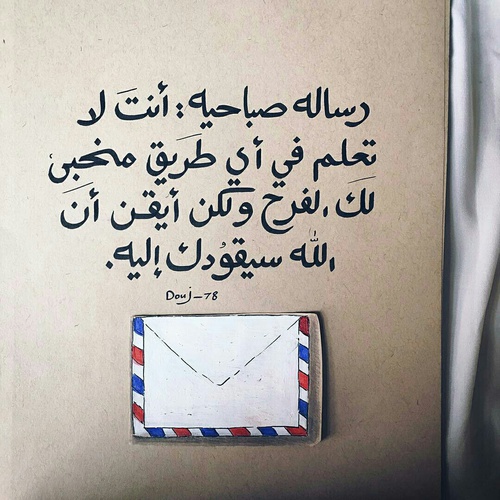 رساله صباحيه : أنتَ لا
تعلم في أي طَريق منخبى
لكَ الفرح ولكن أيقن أنَ
الله سيقودك إليه.
Douj_78